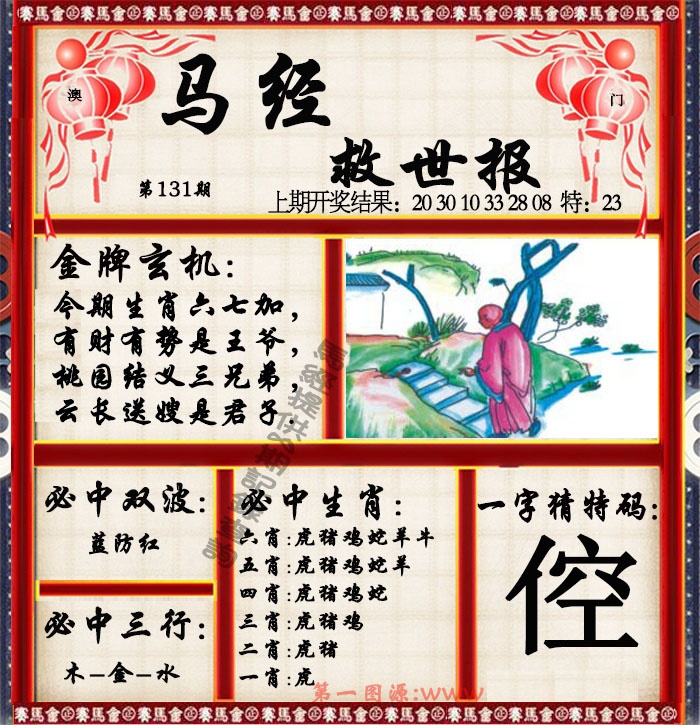 賽馬會㊣賽馬會㊣賽馬會㊣賽馬會㊣賽馬會㊣賽馬會
澳
门
马经
救世报
第131期
上期开奖结果：20 30 10 33 28 08 特：23
金牌玄机：
今期生肖六七加，
有财有势是王爷，
桃园结义三兄弟，
云长送嫂是君子.
必中双波：
蓝防红
必中三行：
木–金–水
必中生肖：
六肖:虎猪鸡蛇羊牛
五肖:虎猪鸡蛇羊
四肖:虎猪鸡蛇
三肖:虎猪鸡
二肖:虎猪
一肖:虎
一字猜特码：
倥
第一图源:www